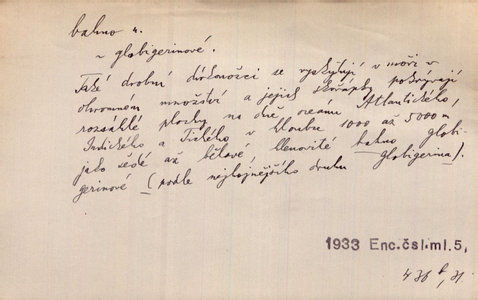 bahno n.
~ globigerinové.
Také drobní dírkonožci se vyskytují v moři v
ohromném množství a jejich skořápky pokrývají
rozsáhlé plochy na dně oceánu Atlantického,
Indického a Tichého v hloubce 1000 až 5000 m
jako šedé až bělavé slenovité bahno globi-
gerinové (podle nejhojnějšího druhu Globigerina).
1933 Enc.čsl.ml.5,
436